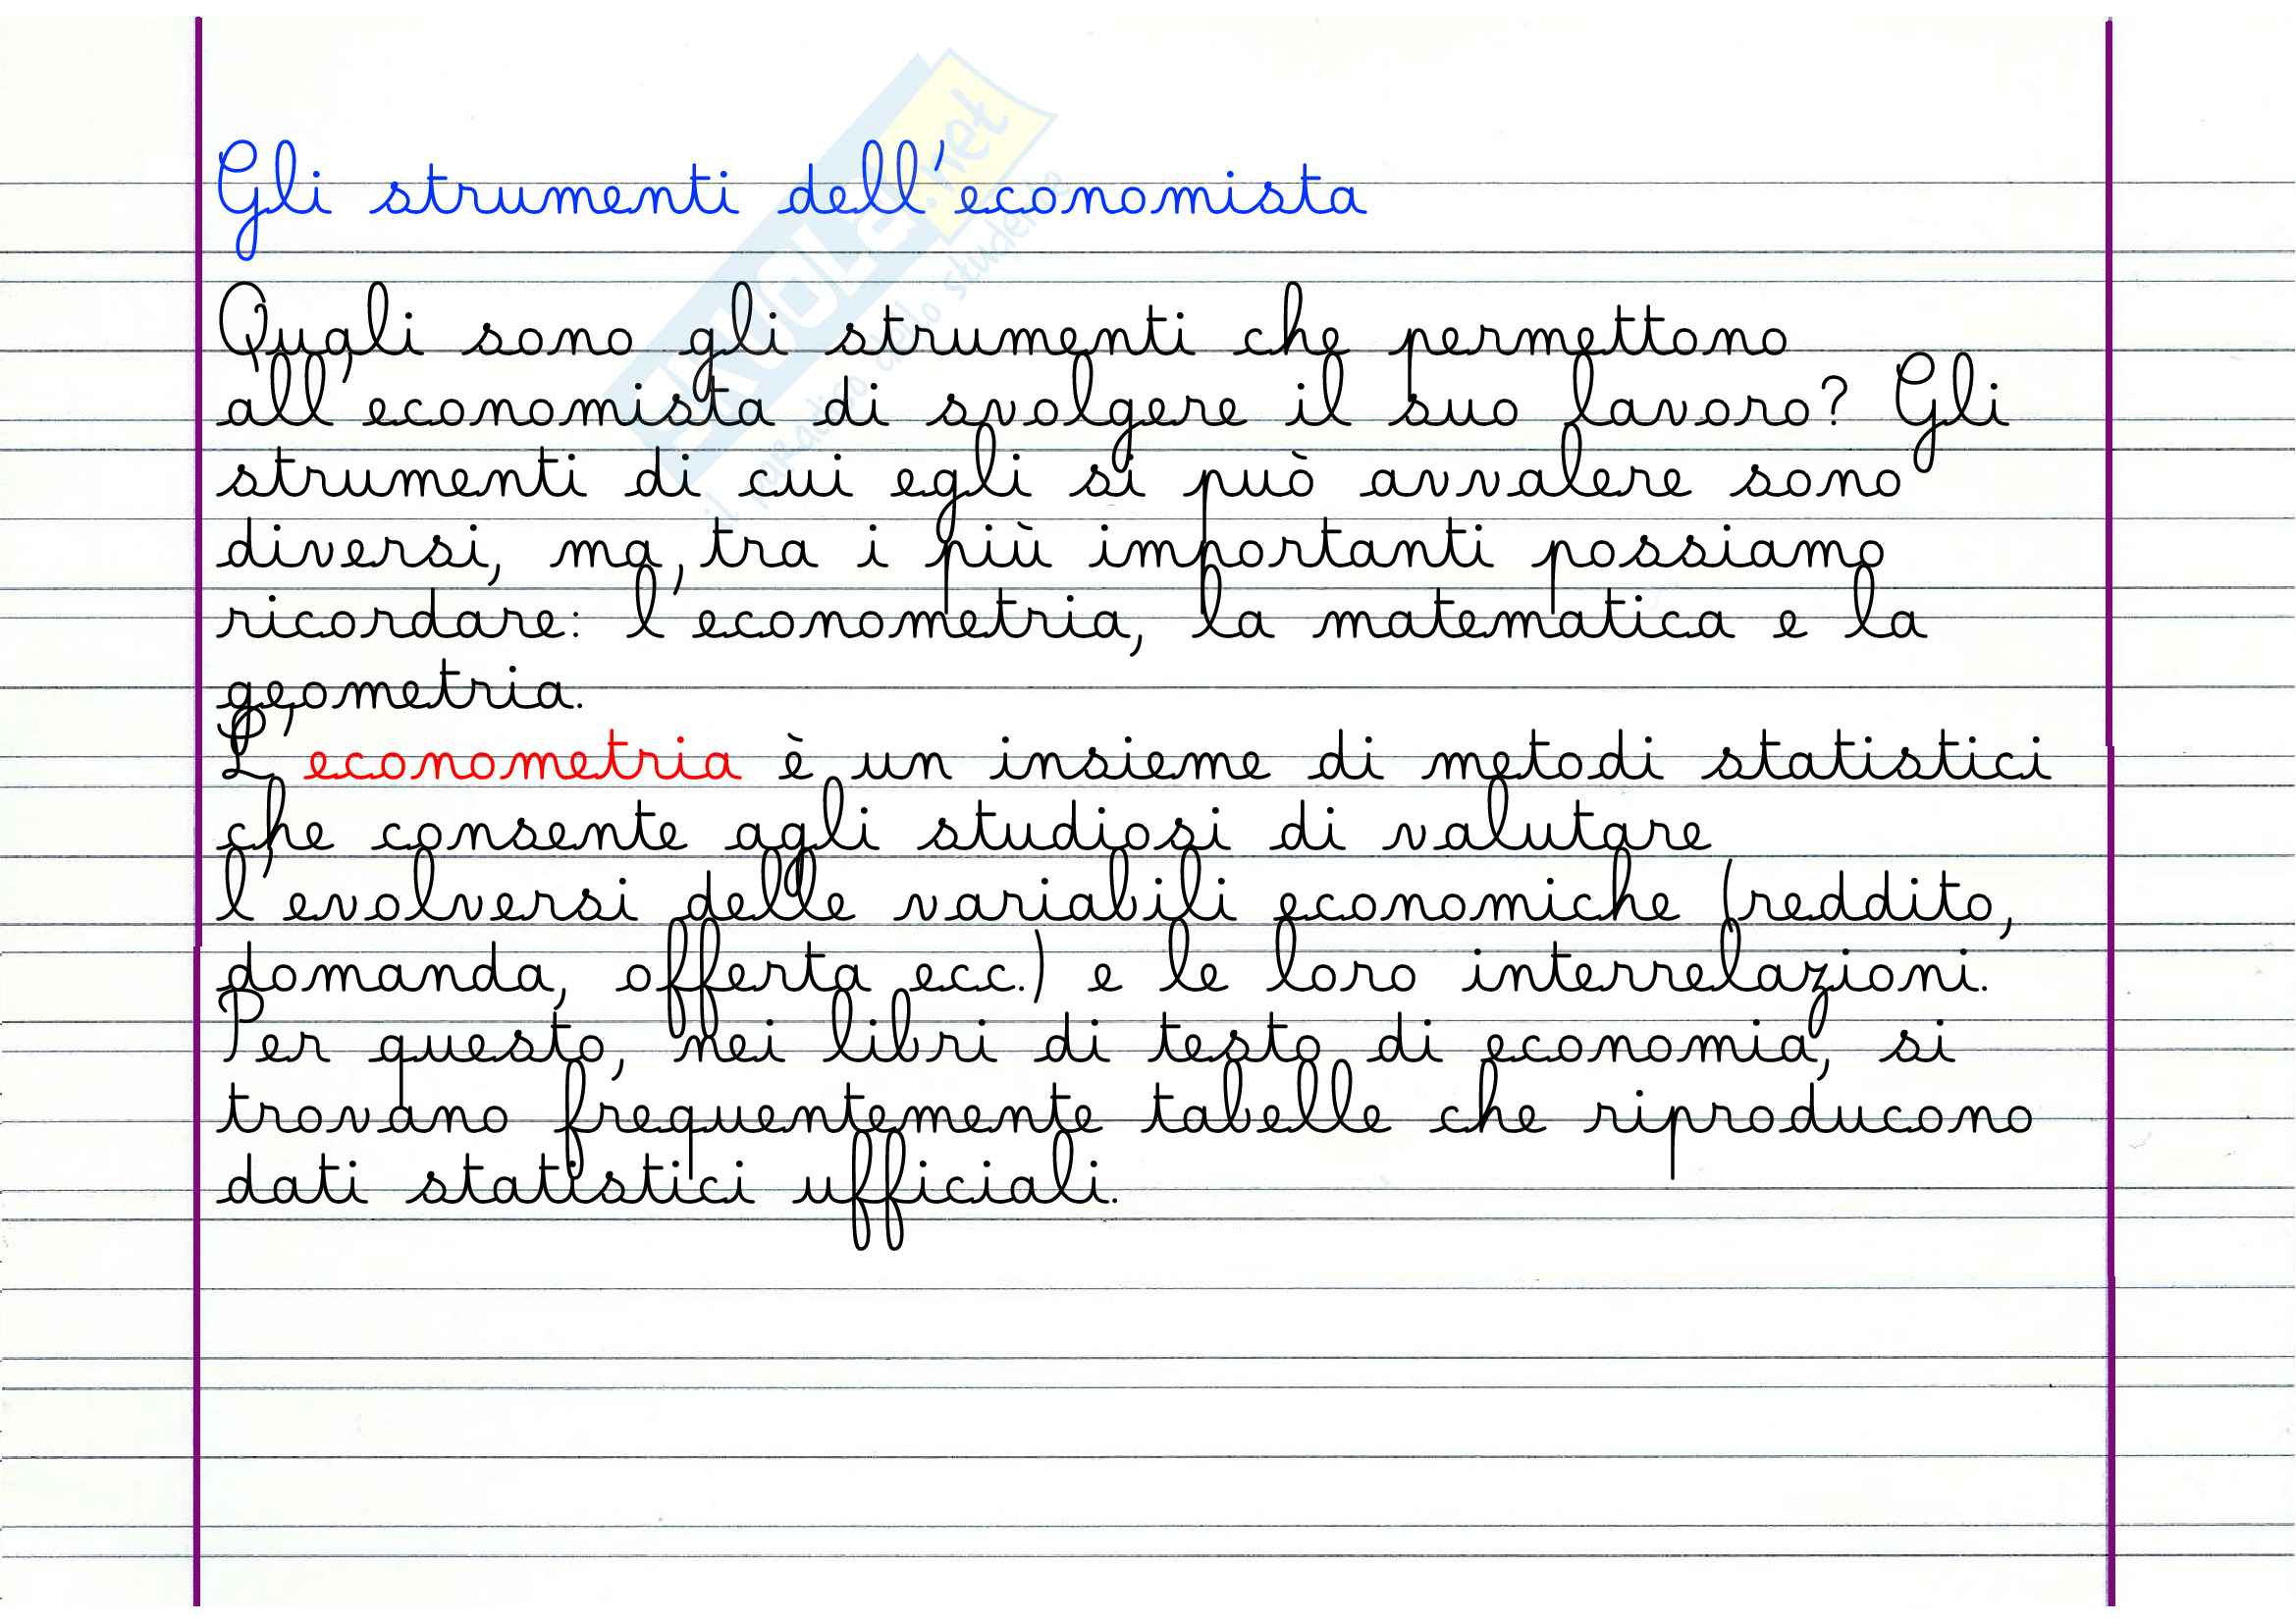 Gli strumenti dell'economista
Quali sono gli strumenti che permettono
all'economista di svolgere il suo lavoro? Gli
strumenti di cui egli si può avvalere sono
diversi, ma tra i più importanti possiamo
ricordare: l'econometria, la matematica e la
geometria.
L'econometria è un insieme di metodi statistici
che consente agli studiosi di valutare
l'evolversi delle variabili economiche (reddito,
domanda, offerta ecc.) e le loro interrelazioni.
Per questo, nei libri di testo di economia, si
trovano frequentemente tabelle che riproducono
dati statistici ufficiali.
SKUOLA.net
il paradiso dello studente